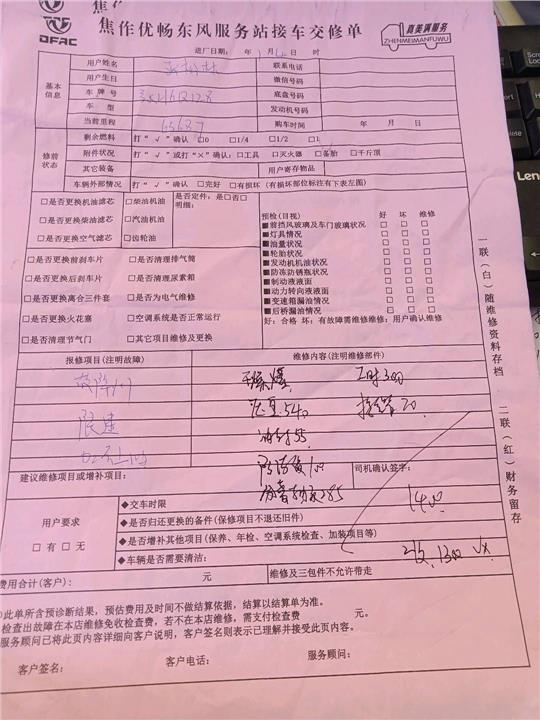 焦
焦作优畅东风服务站接车交修单
DFAC
真美满服务
ZHENMEIMANFUWU
进厂日期: 年 月 日 时
基本信息
用户姓名 联系电话
用户生日 微信号码
车 牌 号 底盘号码
车 型 发动机号码
当前里程 65687 购车时间 年 月 日
修前状态
剩余燃料 打"√"确认 □0 □1/4 □1/2 □1
附件状况 打"√"或打"×"确认: □工具 □灭火器 □备胎 □千斤顶
其它装备 用户寄存物品
车辆外部情况 打"√"确认 □完好 □有损坏 (有损坏部位标注有下表左图)
□是否更换机油滤芯 □柴油机油 是否定件: 是□否□
明细:
□是否更换柴油滤芯 □汽油机油
□是否更换空气滤芯 □齿轮油
□是否更换前刹车片 □是否清理排气筒
□是否更换后刹车片 □是否清理尿素箱
□是否更换离合三件套 □是否为电气维修
□是否更换火花塞 □空调系统是否正常运行
□是否清理节气门 □其它项目维修及更换
预检(目视) 好 坏 维修
■前挡风玻璃及车门玻璃状况 □ □ □
■灯具情况 □ □ □
■油量状况 □ □ □
■轮胎状况 □ □ □
■发动机机油状况 □ □ □
■防冻防锈瓶状况 □ □ □
■制动液液面 □ □ □
■动力转向液液面 □ □ □
■变速箱漏油情况 □ □ □
■后桥漏油情况 □ □ □
好: 合格 坏: 有故障需维修维修: 用户确认维修
报修项目(注明故障) 维修内容(注明维修部件)
故障灯 工时300
限速 540
55
防冻液100
285
建议维修项目或增补项目: 司机确认签字:
1400
用户要求
□有 □无
◆交车时限
◆是否归还更换的备件(保修项目不退还旧件)
◆是否增补其他项目(保养、年检、空调系统检查、加装项目等)
◆车辆是否需要清洁:
1300
费用合计(客户): 元 维修及三包件不允许带走
此单所含预诊断结果,预估费用及时间不做结算依据,结算以结算单为准。
检查出故障在本店维修免收检查费,若不在本店维修,需支付检查费 元。
服务顾问已将此页内容详细向客户说明,客户签名则表示已理解并接受此页内容。
客户签名: 客户电话: 服务顾问:
一联(白)随维修资料存档
二联(红)财务留存
Leno